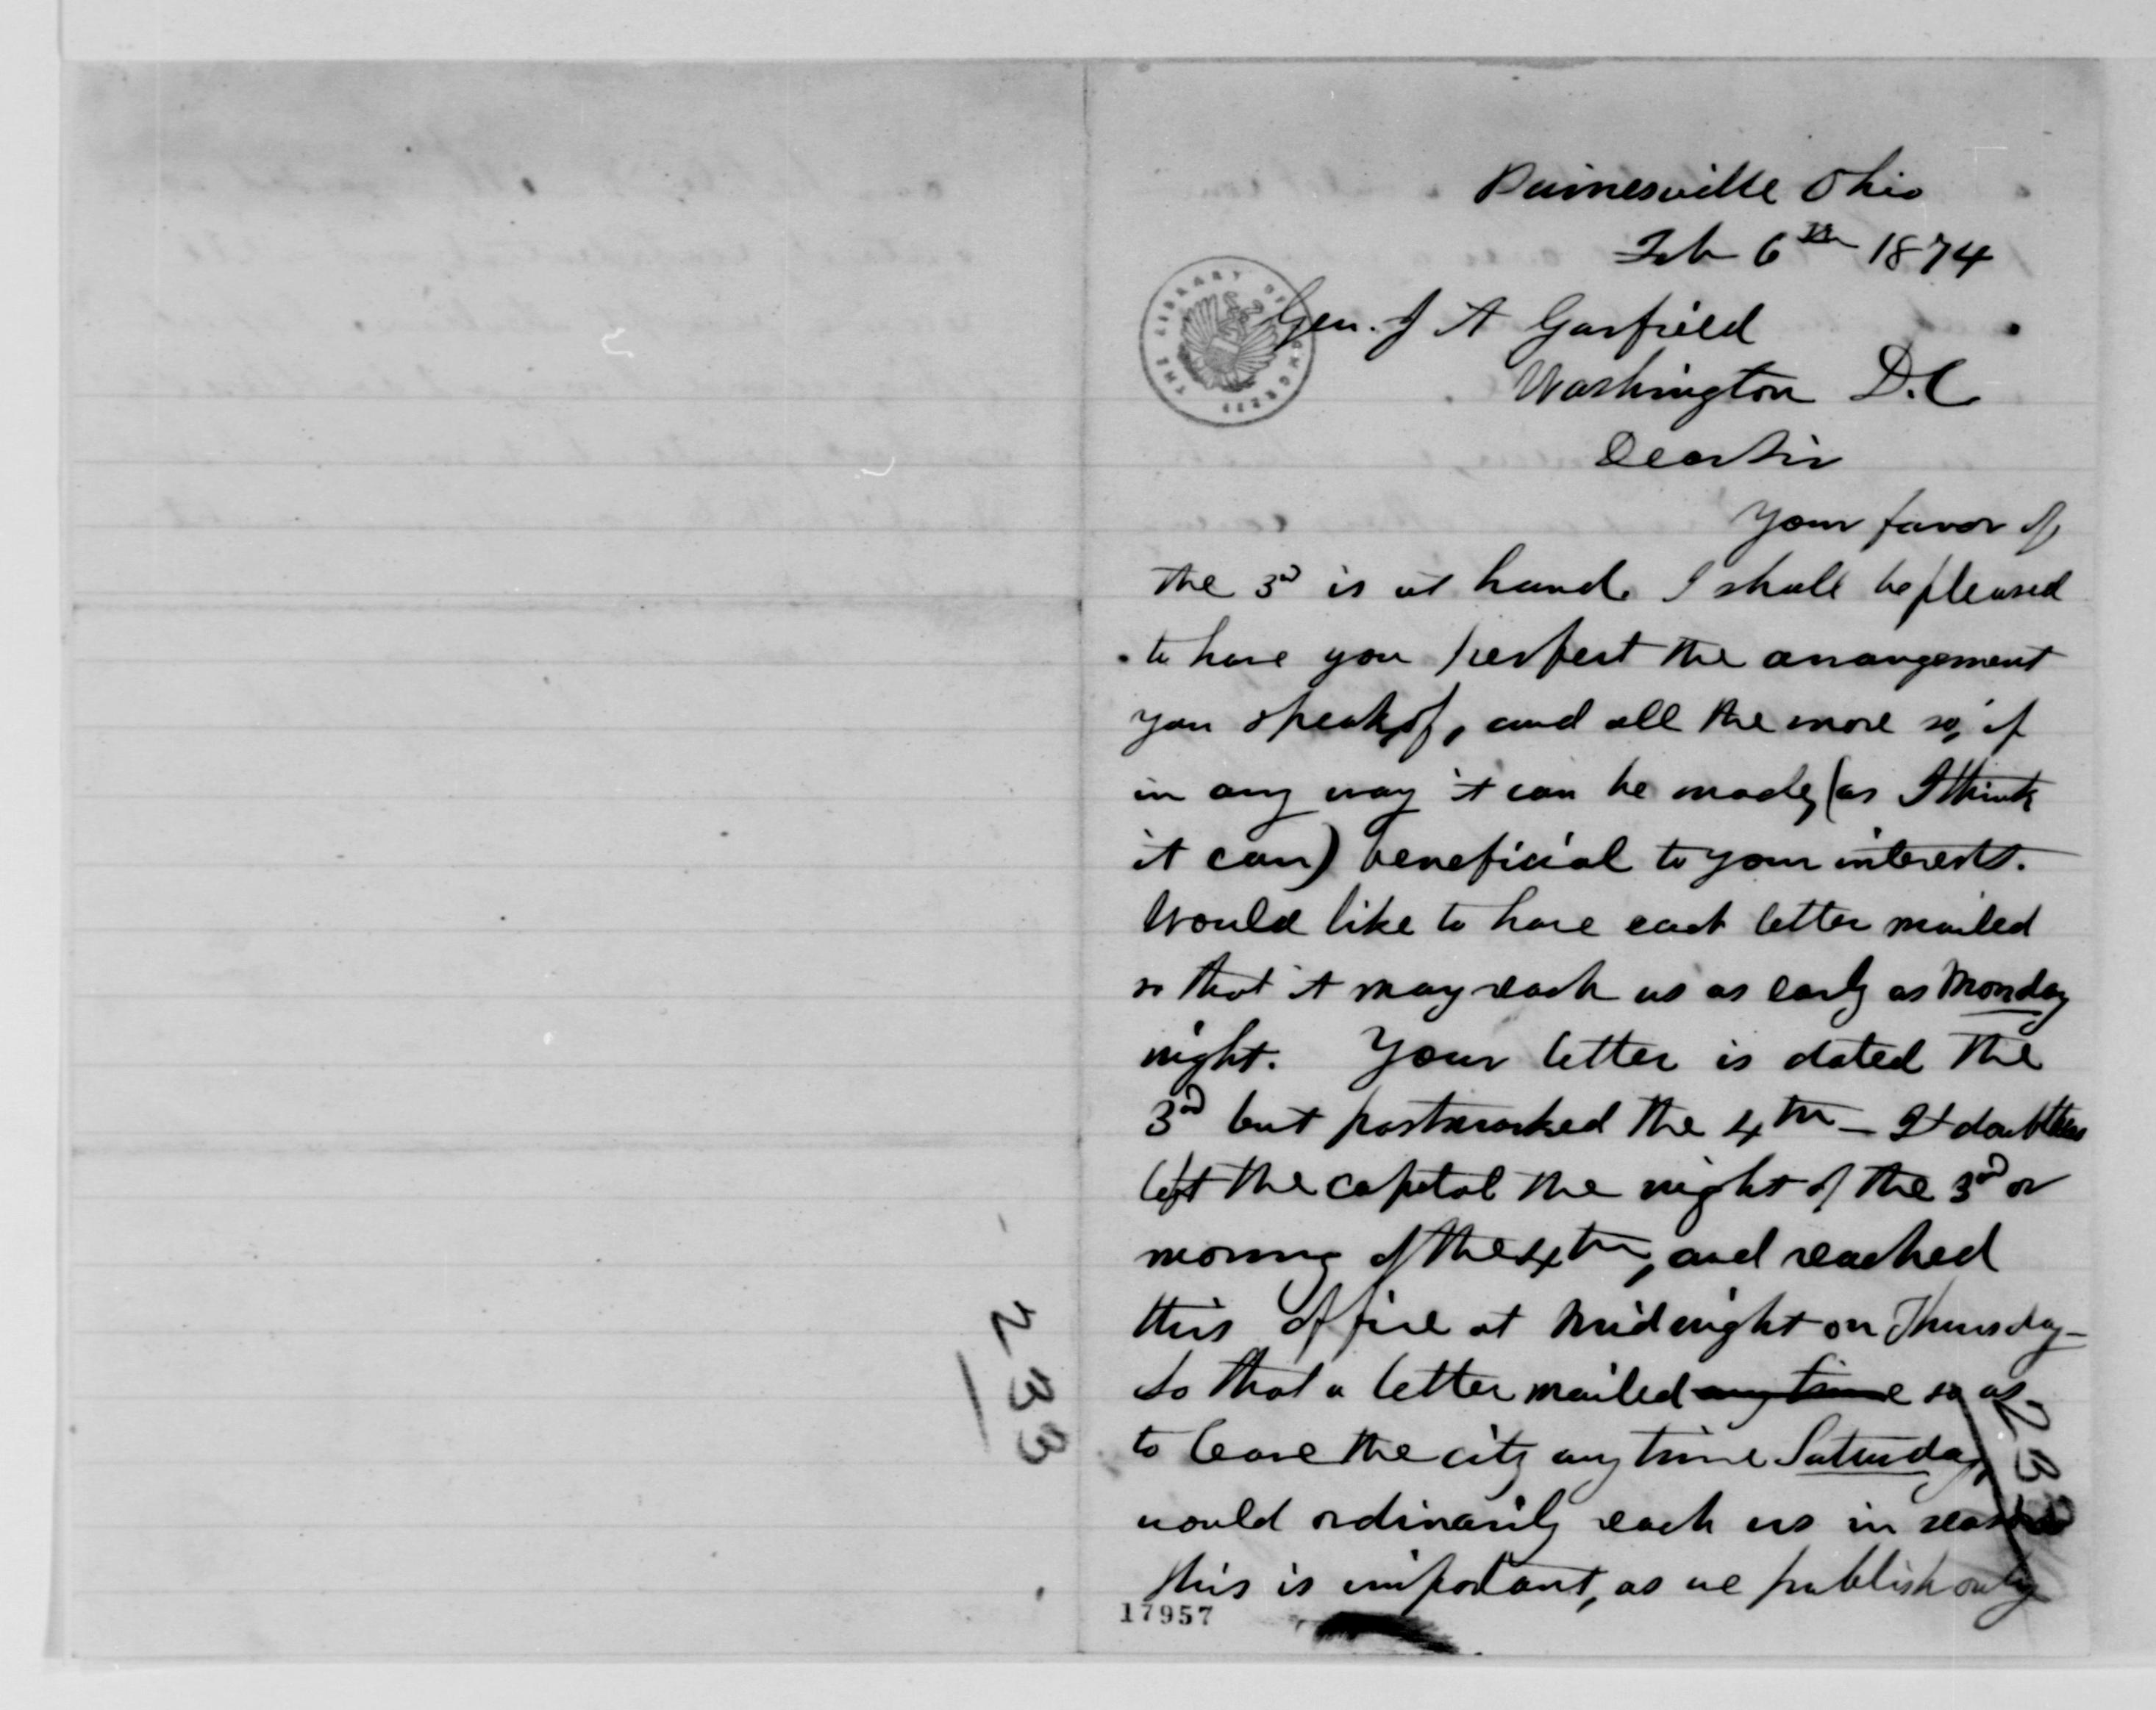 Painesville Ohio
Feb 6th 1874
THE LIBRARY OF CONGRESS
Gen. J A Garfield
Washington D.C
Dear Sir
Your favor of
the 3d is at hand. I shall be pleased
to have you perfect the arrangement
you speak of, and all the more so, if
in any way it can be made, (as I think
it can) beneficial to your interests.
Would like to have each letter mailed
so that it may reach us as early as Monday
night. Your letter is dated the
3rd but postmarked the 4th – It doubtless
left the capitol the night of the 3rd or
morning of the 4th, and reached
this office at midnight on Thursday –
So that a letter mailed any time so as
to leave the city any time Saturday,
would ordinarily reach us in season
this is important, as we publish only
17957
233
233